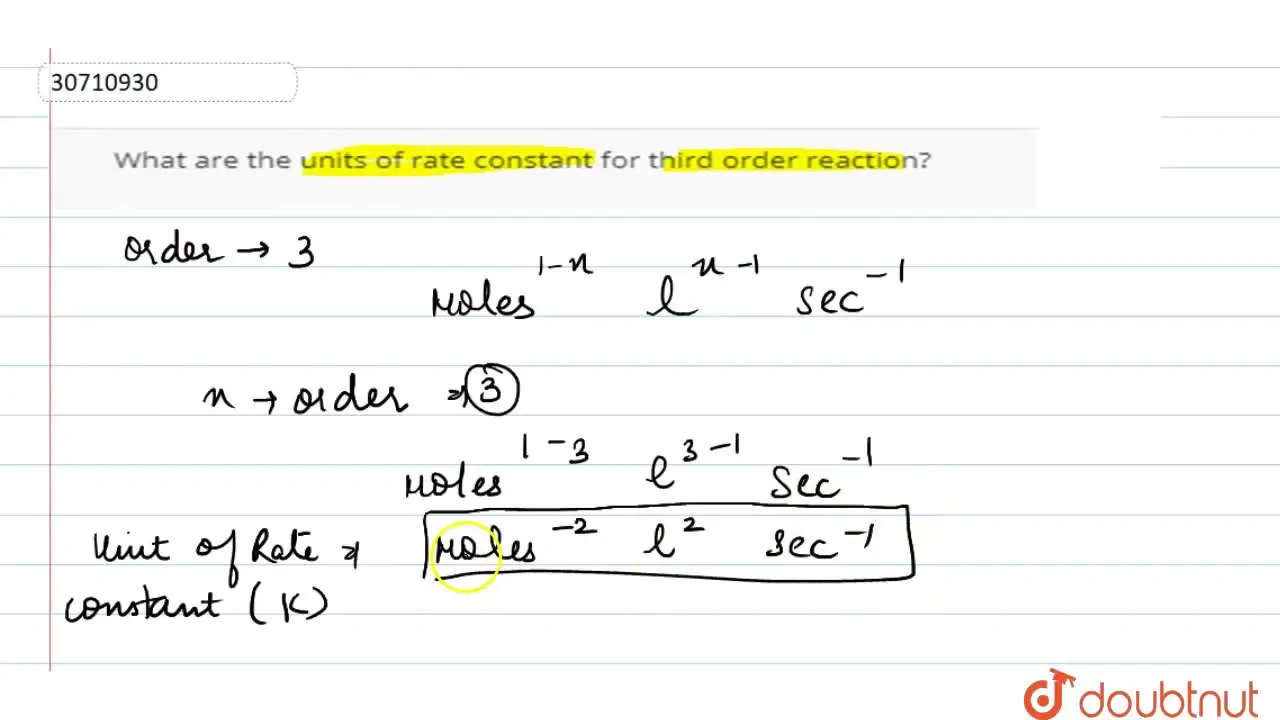 30710930
What are the units of rate constant for third order reaction?
order → 3
moles^1-n l^n-1 sec^-1
n → order ⇒ 3
moles^1-3 l^3-1 Sec^-1
Unit of Rate ⇒ moles^-2 l^2 sec^-1
constant (K)
doubtnut